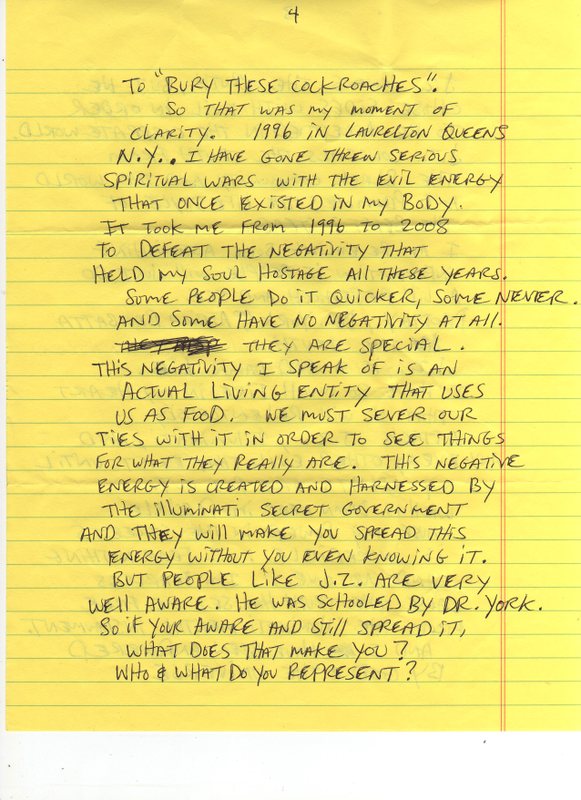 4
To "Bury these cockroaches".
So that was my moment of
clarity. 1996 in Laurelton Queens
N.Y.. I have gone threw serious
spiritual wars with the evil energy
that once existed in my body.
It took me from 1996 to 2008
to defeat the negativity that
held my soul hostage all these years.
Some people do it quicker, some never.
And some have no negativity at all.
They are special.
This negativity I speak of is an
actual living entity that uses
us as food. We must sever our
ties with it in order to see things
for what they really are. This negative
energy is created and harnessed by
the illuminati secret government
and they will make you spread this
energy without you even knowing it.
But people like J.Z. are very
well aware. He was schooled by Dr. York.
So if your aware and still spread it,
what does that make you?
Who & what do you represent?